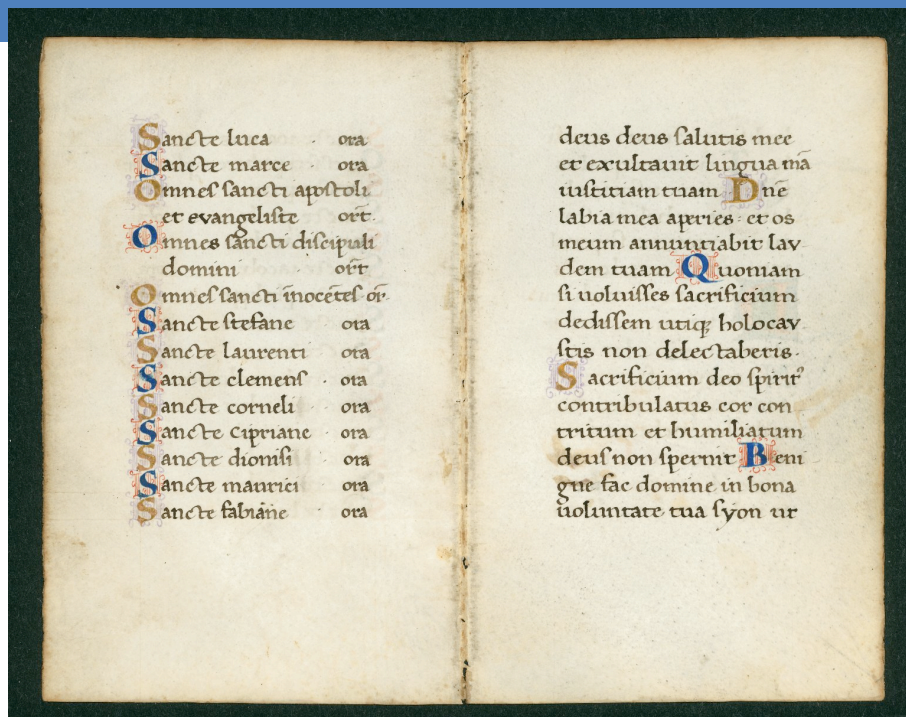 Sancte luca ora
Sancte marce ora
Omnes sancti apostoli
et evangeliste ort̄
Omnes sancti discipuli
domini ort̄
Omnes sancti īnocētes or̄
Sancte stefane ora
Sancte laurenti ora
Sancte clemens ora
Sancte corneli ora
Sancte cipriane ora
Sancte dionisi ora
Sancte maurici ora
Sancte fabiane ora
deus deus salutis mee
et exultavit lingua mā
iustitiam tuam Dnē
labia mea aperies et os
meum annuntiabit lav
dem tuam Quoniam
si uoluisses sacrificium
dedissem utiqꝫ holocav
stis non delectaberis.
Sacrificium deo spirit᾽
contribulatus cor con
tritum et humiliatum
deus non spernit Beni
gne fac domine in bona
uoluntate tua syon ut